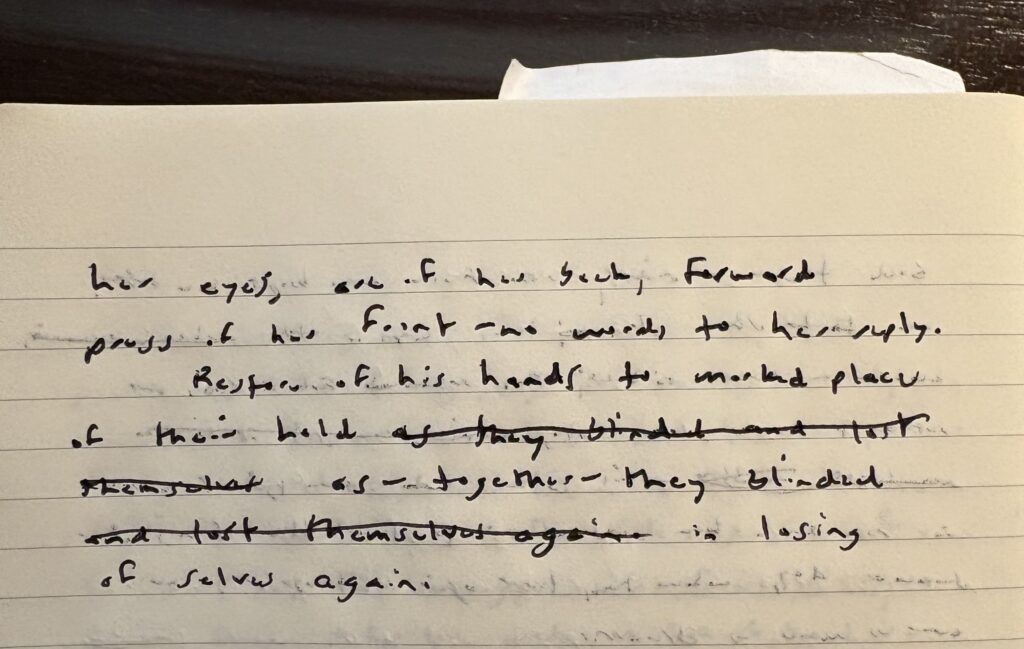 her eyes, arc of her back, forward
press of her front – no words to her reply.
Restore of his hands to marked place
of their hold as they blinded and lost
themselves as – together – they blinded
and lost themselves again in losing
of selves again: